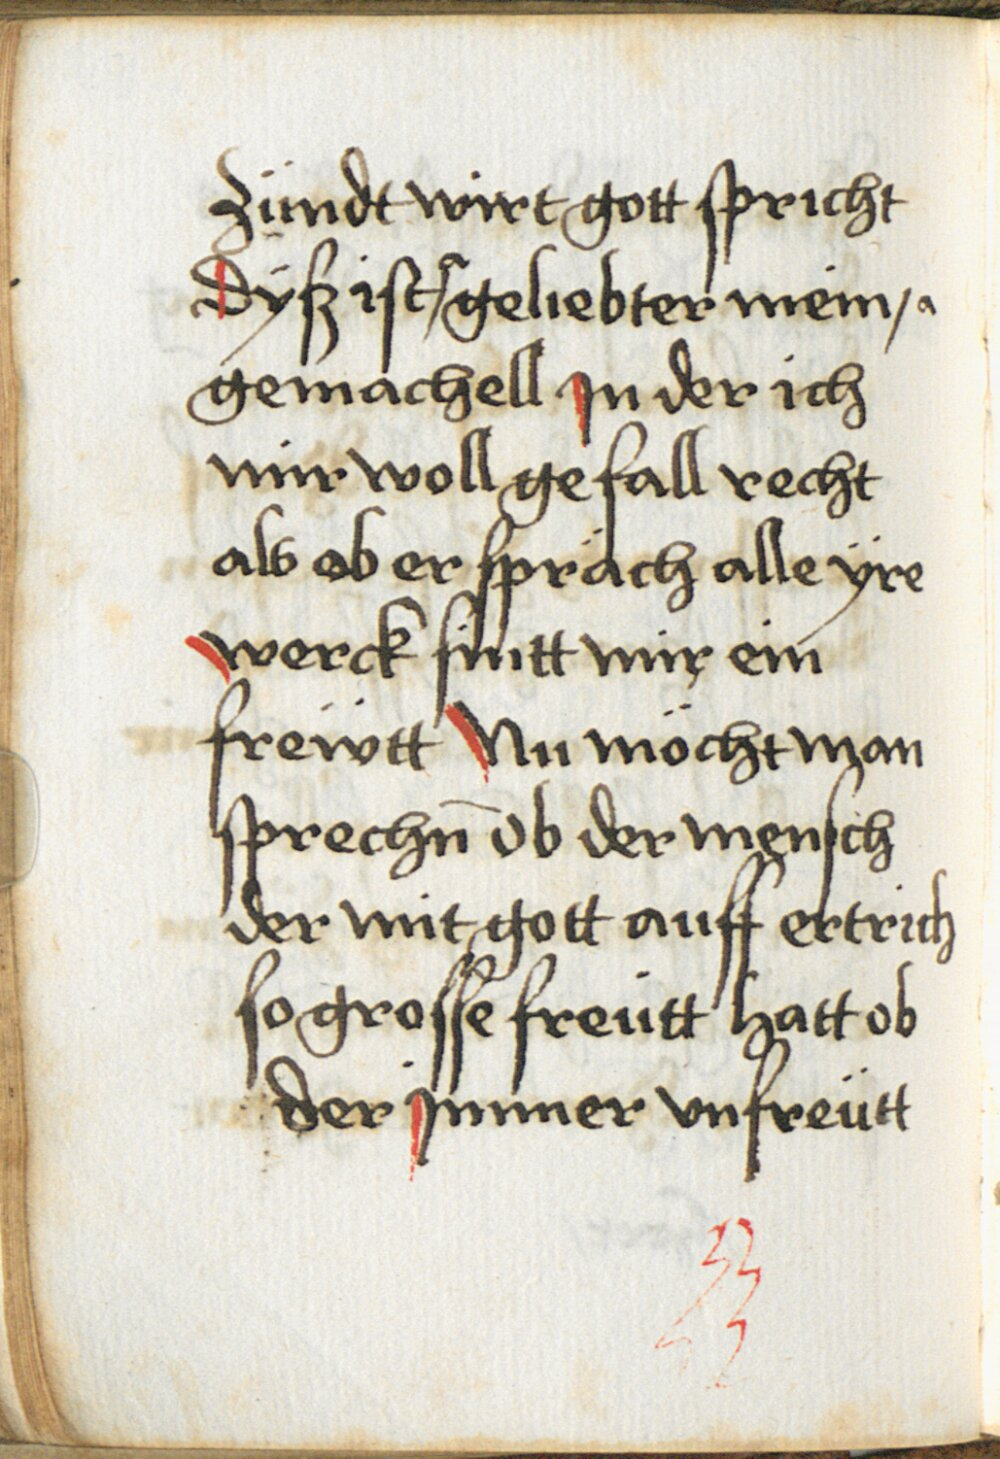 zündt wirt gott spricht
Dyß ist / a geliebter mein / a
gemachell Jn der ich
mir woll gefall recht
als ob er spräch alle ÿre
werck sintt mir ein
freẅtt Nu möcht man
sprechn̄ ob der mensch
der mit gott auff ertrich
so grosse freütt hatt ob
der Jmmer vnfreütt